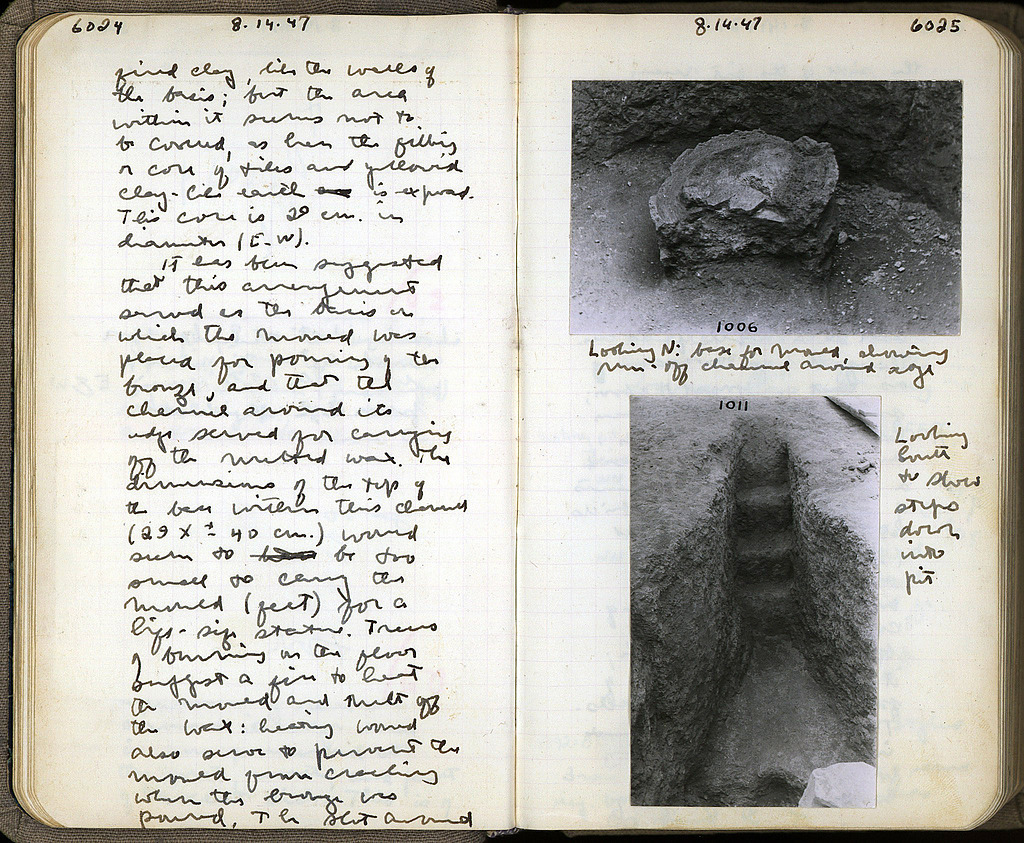 6024 8.14.47
fired clay, like the walls of
the basis; but the area
within it seems not to
be covered, as here the filling
or core of tiles and yellowish
clay-like earth is exposed.
This core is 29 cm. in
diameter (E-W).
It has been suggested
that this arrangement
served as the basis on
which the mould was
placed for pouring of the
bronze, and that the
channel around its
edge served for carrying
off the melted wax. The
dimensions of the top of
the base within this channel
(29 x ± 40 cm.) would
seem to be too
small to carry the
mould (feet) for a
life-size statue. Traces
of burning on the floor
suggest a fire to heat
the mould and melt off
the wax: heating would
also serve to prevent the
mould from cracking
when the bronze was
poured. The slot around
8.14.47 6025
1006
Looking N: base for mould, showing
run-off channel around edge
1011
Looking
South
to show
steps
down
into
pit